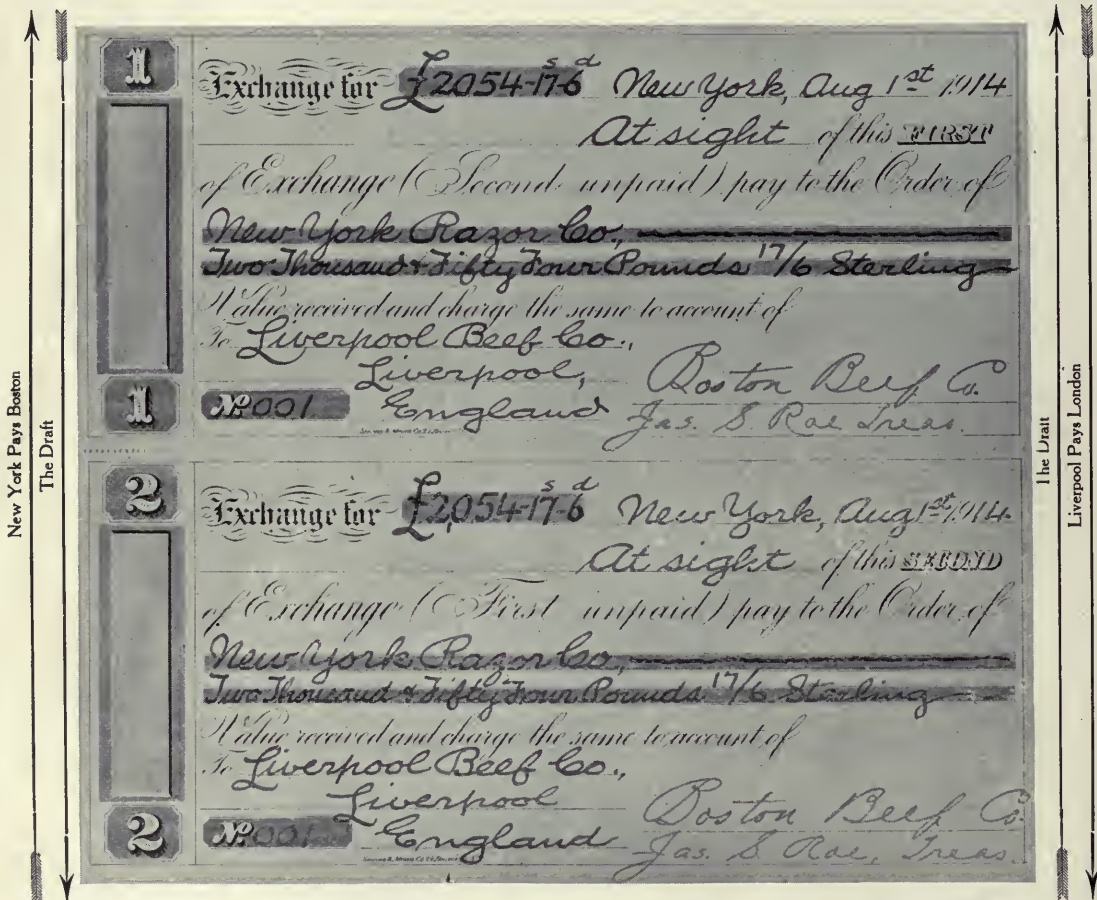 New York Pays Boston
The Draft
1
Exchange for £2054-17s-6d New York, Aug 1st 1914
At sight of this FIRST
of Exchange (Second unpaid) pay to the Order of
New York Razor Co.,
Two Thousand & Fifty Four Pounds 17/6 Sterling
Value received and charge the same to account of
To Liverpool Beef Co.,
Liverpool,
England
1
No. 001
Boston Beef Co.
Jas. S. Roe Treas.
2
Exchange for £2,054-17s-6d New York, Aug 1st 1914.
At sight of this SECOND
of Exchange (First unpaid) pay to the Order of
New York Razor Co.,
Two Thousand & Fifty Four Pounds 17/6 Sterling
Value received and charge the same to account of
To Liverpool Beef Co.,
Liverpool
England
2
No. 001
Boston Beef Co.
Jas. S. Roe, Treas.
The Draft
Liverpool Pays London